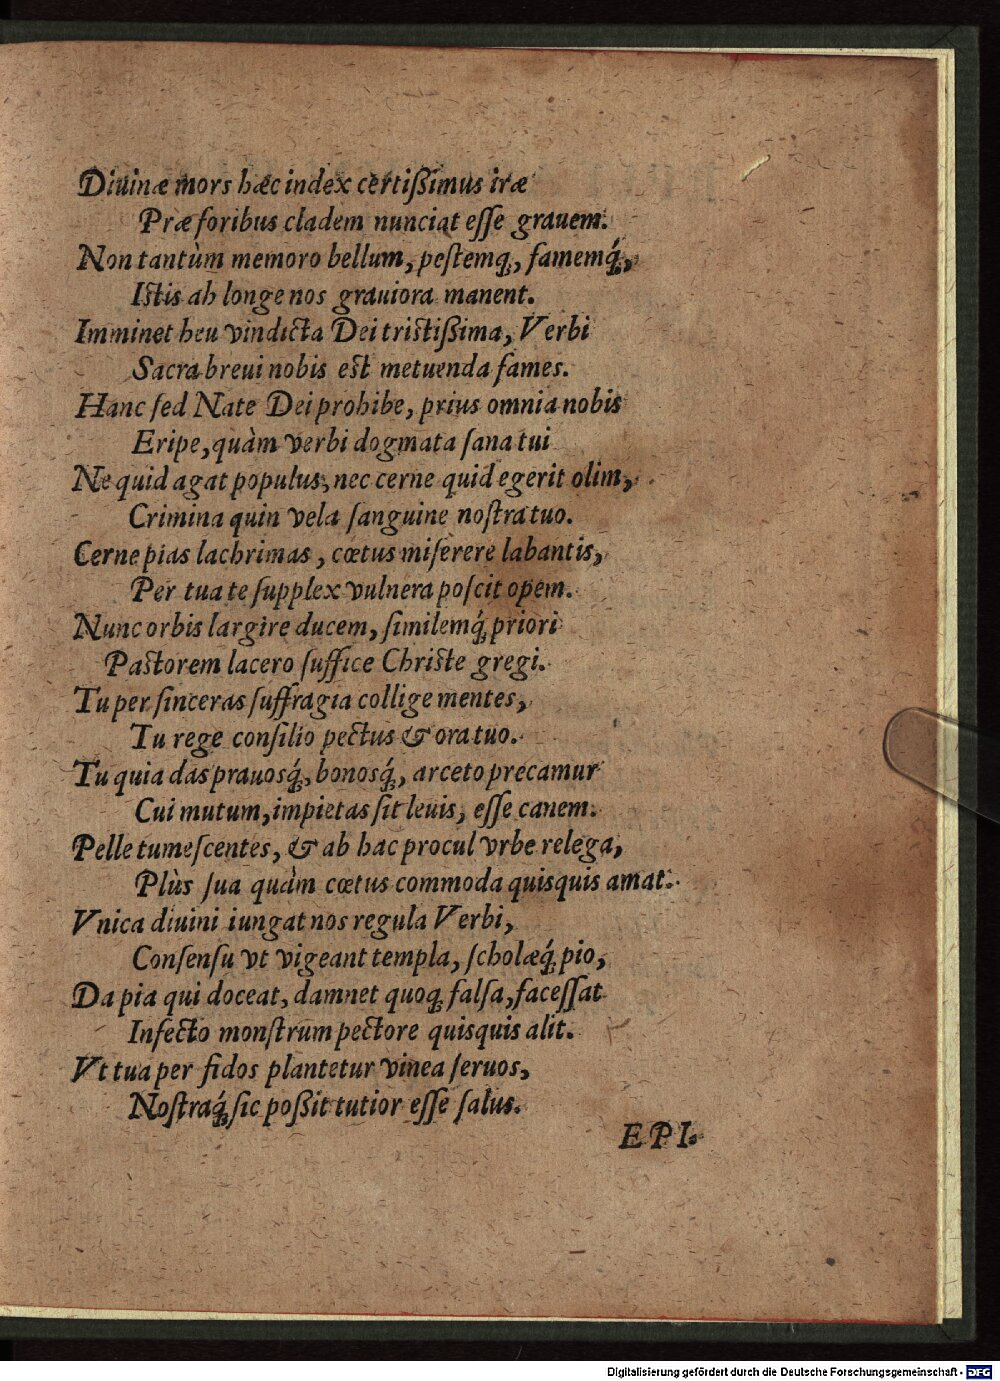 Diuinæ mors hæc index certißimus iræ
Præ foribus cladem nunciat eſſe grauem.
Non tantùm memoro bellum, peſtemq́, famemq́,
Iſtis ab longe nos grauiora manent.
Imminet heu vindicta Dei triſtißima, Verbi
Sacra breui nobis eſt metuenda fames.
Hanc ſed Nate Dei prohibe, prius omnia nobis
Eripe, quàm verbi dogmata ſana tui
Ne quid agat populus, nec cerne quid egerit olim,
Crimina quin vela ſanguine noſtra tuo.
Cerne pias lachrimas, cœtus miſerere labantis,
Per tua te ſupplex vulnera poſcit opem.
Nunc orbis largire ducem, ſimilemq́ priori
Paſtorem lacero ſuffice Chriſte gregi.
Tu per ſinceras ſuffragia collige mentes,
Tu rege conſilio pectus & ora tuo.
Tu quia das prauosq́, bonosq́, arceto precamur
Cui mutum, impietas ſit leuis, eſſe canem.
Pelle tumeſcentes, & ab hac procul vrbe relega,
Plùs ſua quàm cœtus commoda quisquis amat.
Vnica diuini iungat nos regula Verbi,
Conſenſu vt vigeant templa, ſcholæq́ pio,
Da pia qui doceat, damnet quoq falſa, faceſſat
Infecto monſtrum pectore quisquis alit.
Vt tua per fidos plantetur vinea ſeruos,
Noſtraq́ ſic poßit tutior eſſe ſalus.
EPI.
Digitalisierung gefördert durch die Deutsche Forschungsgemeinschaft - DFG